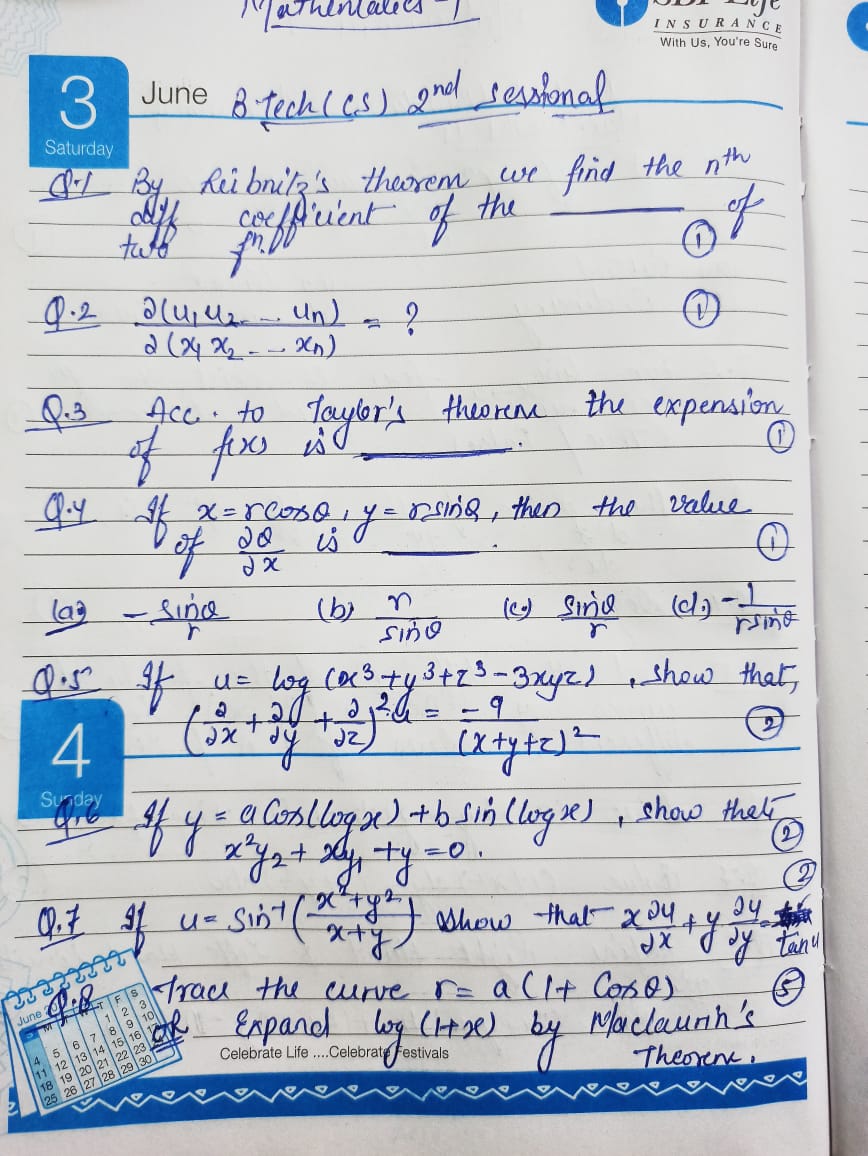 Mathematics - 1
INSURANCE
With Us, You're Sure
3 June B.tech (CS) 2nd sessional
Saturday
Q.1 By Leibnitz's theorem we find the nth
diff coefficient of the ______ of
two fn. (1)
Q.2 ∂(u1 u2 - - - un) / ∂(x1 x2 - - - xn) = ? (1)
Q.3 Acc. to Taylor's theorem the expension
of f(x) is ______. (1)
Q.4 If x = r cosθ, y = r sinθ, then the value
of ∂θ/∂x is ______. (1)
(a) - sinθ/r (b) r/sinθ (c) sinθ/r (d) - 1/r sinθ
Q.5 If u = log (x³ + y³ + z³ - 3xyz), show that,
(∂/∂x + ∂/∂y + ∂/∂z)² u = -9/(x+y+z)² (2)
4
Sunday
Q.6 If y = a Cos(log x) + b sin (log x), show that
x²y₂ + xy₁ + y = 0. (2)
(2)
Q.7 If u = Sin⁻¹ (x²+y²/x+y) show that x ∂u/∂x + y ∂u/∂y = tan u
Q.8 Trace the curve r = a(1 + Cosθ) (5)
OR Expand log (1+x) by Maclaurin's
Theorem.
Celebrate Life ....Celebrate Festivals
June
M T F S
1 2 3
4 5 6 7 8 9 10
11 12 13 14 15 16 17
18 19 20 21 22 23
25 26 27 28 29 30